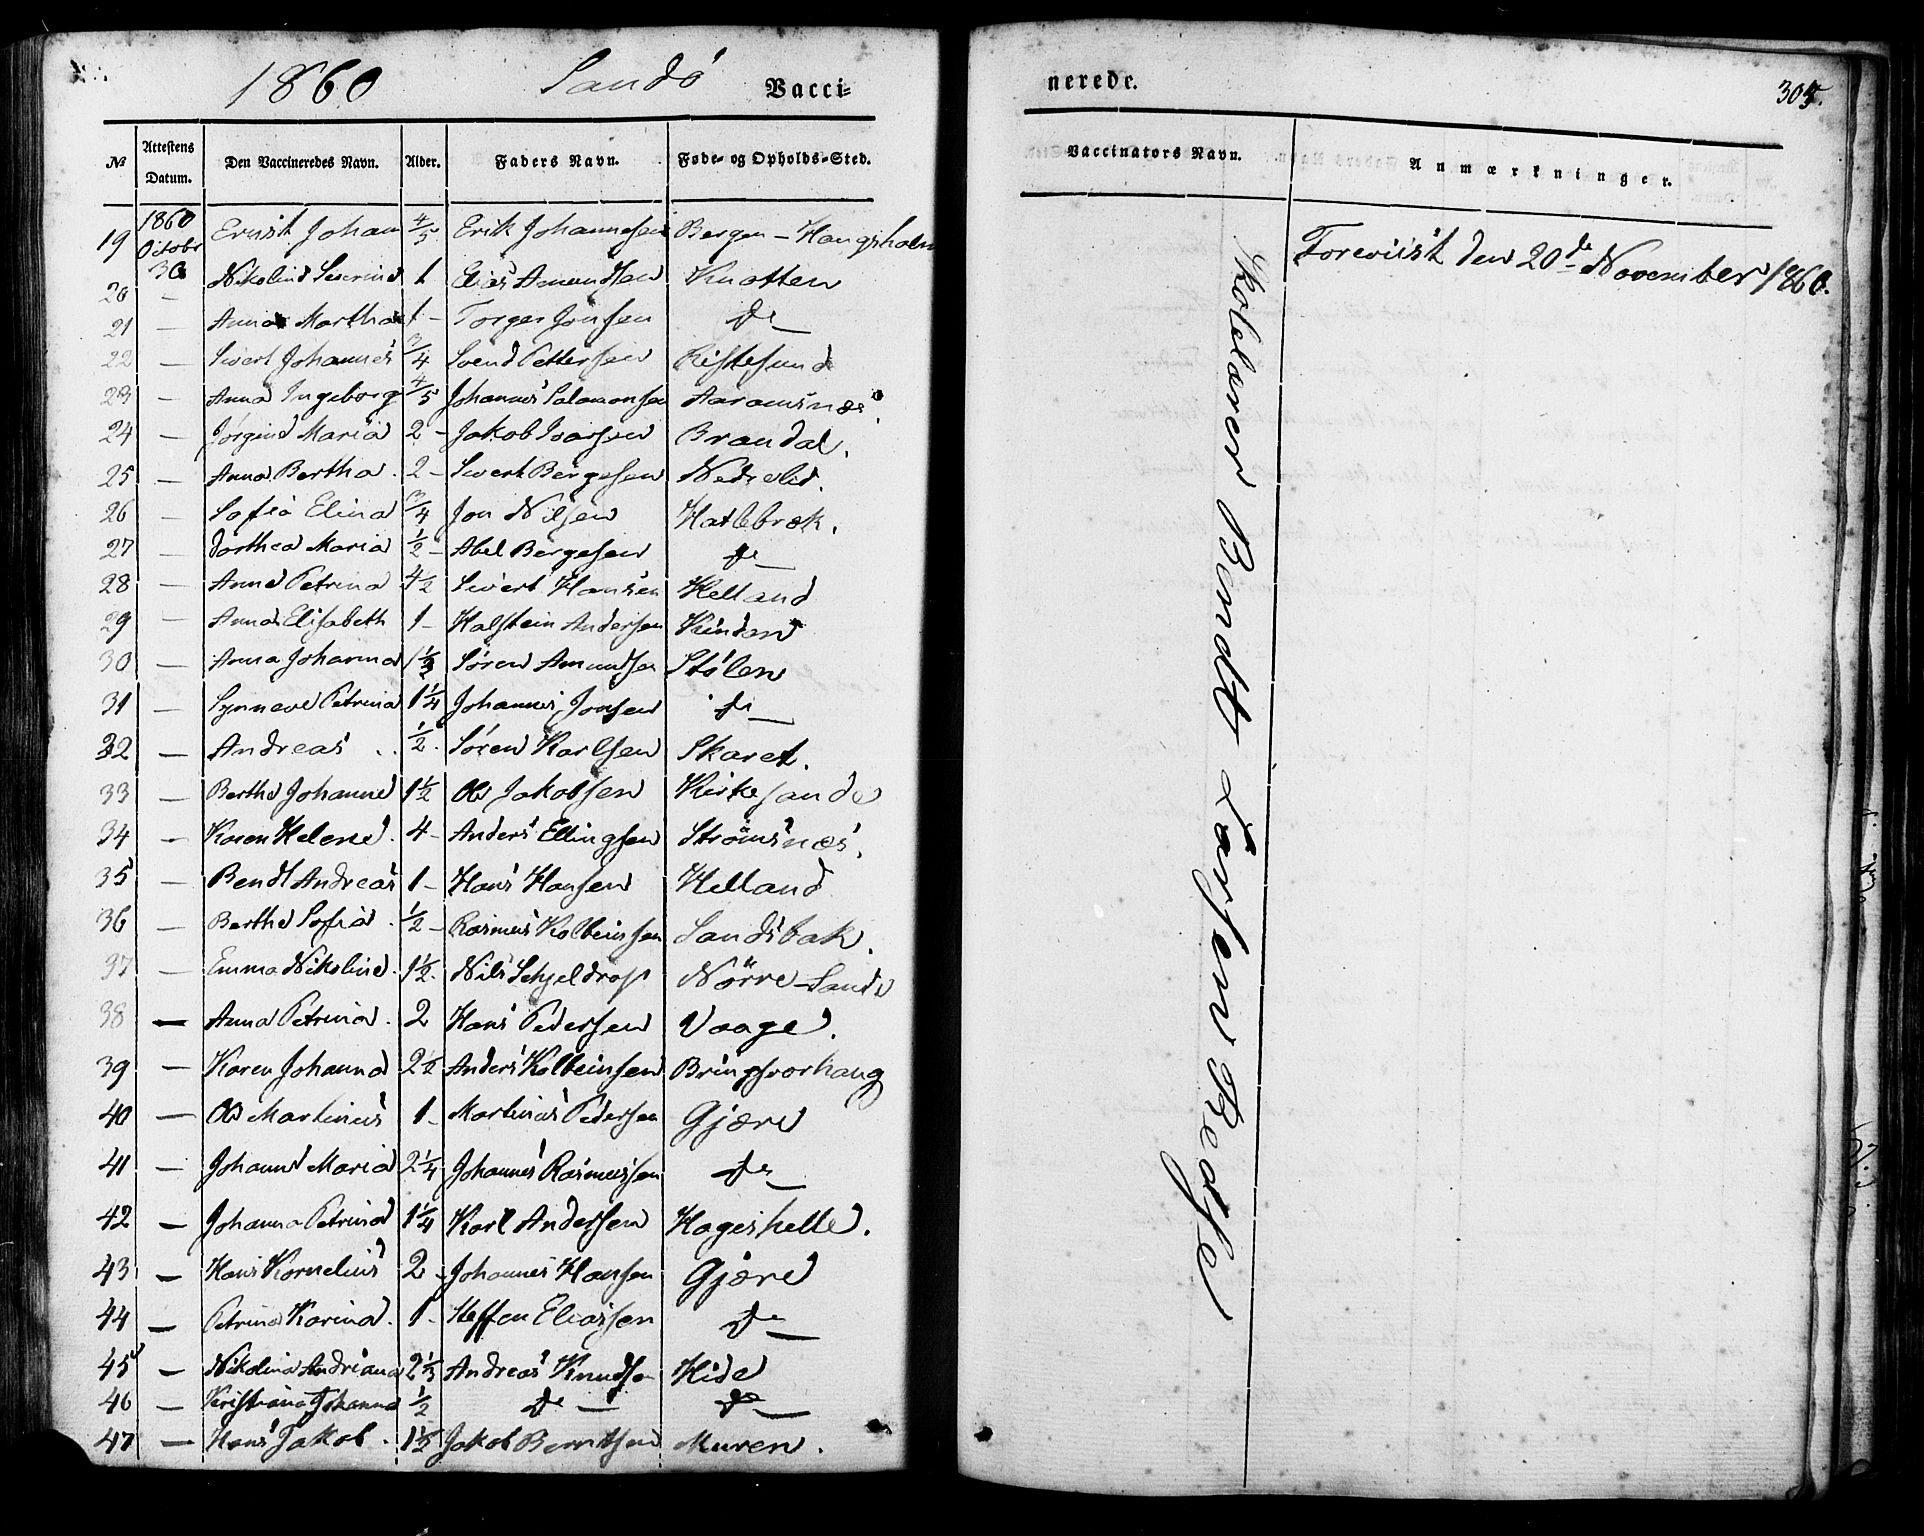 1860 Sandö Vacci=
№ Attestens Datum. Den Vaccineredes Navn. Alder. Faders Navn. Føde- og Opholds-Sted.
19 1860 Octobr 30 Ernst Johan 4/5 Erik Johannesen Bergen - Haugsholm
20 — Nikoline Severine 1 Elias Amundsen Knotten
21 — Anna Martha 1 - Torger Jonsen do —
22 — Sivert Johannes 3/4 Svend Pettersen Ristesund
23 — Anna Ingeborg 4/5 Johannes Salamonsen Aaramsnæs.
24 — Jørgine Maria 2 - Jakob Ivarsen Brandal.
25 — Anna Bertha. 2 - Sivert Bergesen Nedrelid.
26 — Sofia Elina 3/4 Jon Nilsen Hatlebræk.
27 — Dorthea Maria 1/2 - Abel Bergesen do —
28 — Anne Petrina 4 1/2 Sivert Hansen Helland
29 — Anna Elisabeth 1 - Halstein Andersen Kindan
30 — Anna Johanna 1 1/2 Søren Amundsen Stølen
31 — Synneve Petrina 1 1/4 Johannes Jonsen do —
32 — Andreas 1/2 - Søren Karlsen Skaret.
33 — Berthe Johanne 1 1/2 Ole Jakobsen Kirkesande
34 — Karen Helene. 4 - Anders Ellingsen Strømsnæs.
35 — Bendt Andreas 1 - Hans Hansen Helland
36 — Berthe Sofia. 1/2 - Rasmus Kolbeinsen Sandsbak.
37 — Emma Nikoline. 1 1/2. Nils Schjeldrop Nørre-Sande
38 — Anna Petrina. 2 Hans Pedersen Vaage.
39 — Karen Johanna 2 1/2 Anders Kolbeinsen Bringsvorhaug
40 — Ole Martinus 1 - Martinus Pedersen Gjære
41 — Johanne Maria 2 1/4 Johannes Rasmussen do —
42 — Johanna Petrina 1 1/4 Karl Andersen Hageshelle.
43 — Hans Kornelius 2 - Johannes Hansen Gjære
44 — Petrina Karina. 1 - Steffen Eliassen do —
45 — Nikolina Andriana 2 1/3 Andreas Knudsen Hide
46 — Kristiana Johanna 1/2 do — do —
47 — Hans Jakob. 1 1/2 Jakob Berntsen Muren.
nerede.
305.
Vaccinators Navn. Anmærkninger.
Foreviist den 20de November 1860.
Skolelærer Bendt Larsen Rødse